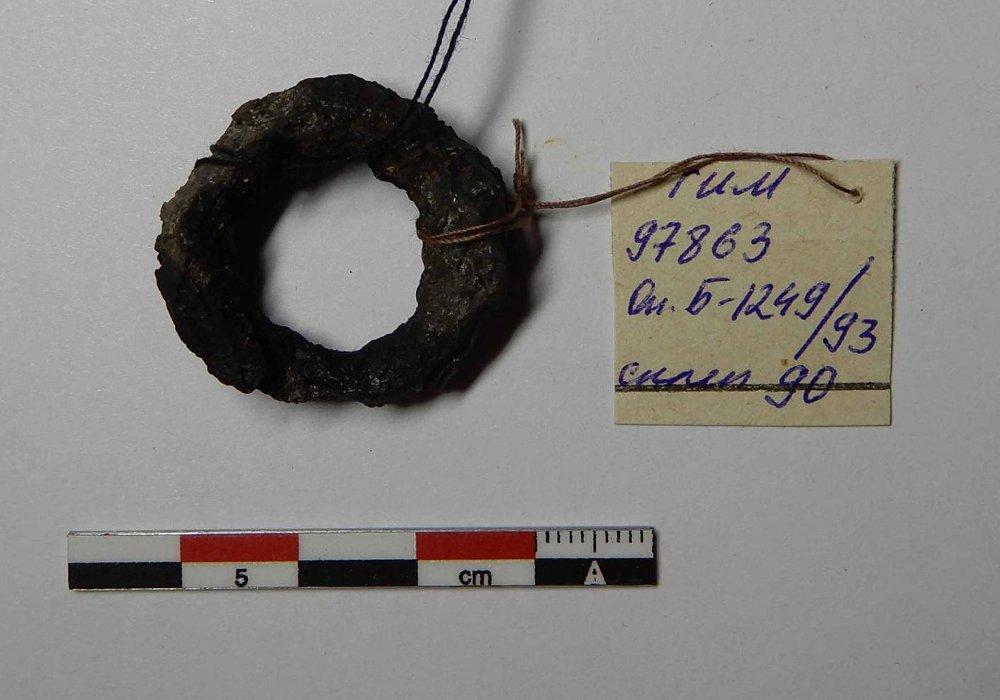 ГИМ
97863
Оп. Б-1249/93
скл. 90
5 cm